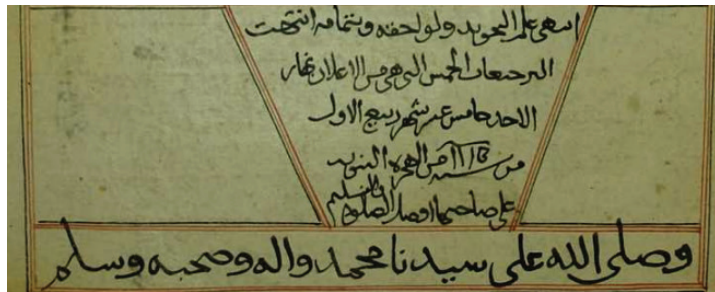 انتهى علم التجويد ولواحقه وبتمامه انتهت
الترجيعات الخمس التي هي من الاعلان نهار
الاحد خامس عشر شهر ربيع الاول
من سنة من الهجرة النبوية
على صاحبها افضل الصلوة والتسليم
وصلى الله على سيدنا محمد واله وصحبه وسلم